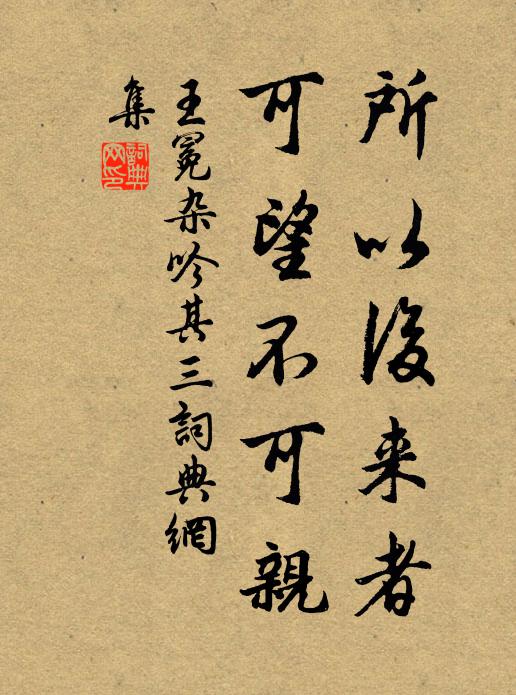 所以後来者
可望不可親
王冕杂吟其三詞典網
集
詞典網印